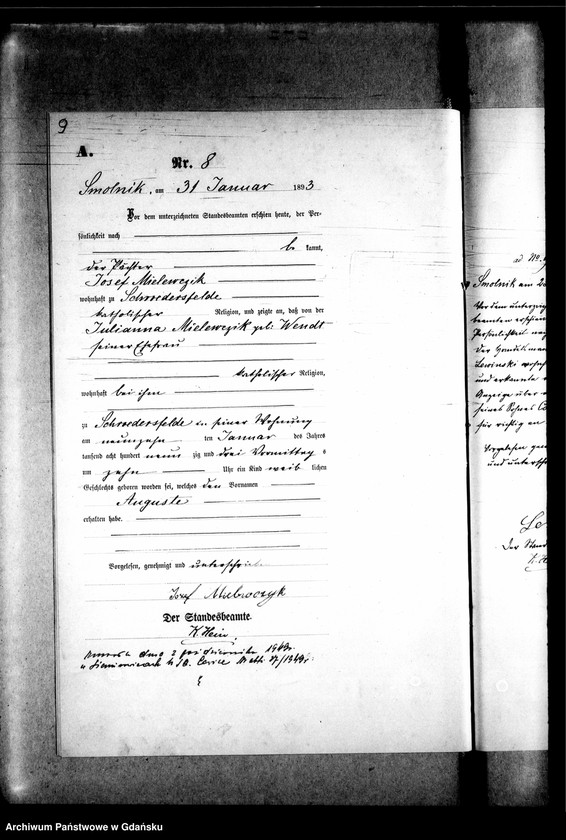 9
A.
Nr. 8
Smolnik, am 31 Januar 1893
Vor dem unterzeichneten Standesbeamten erschien heute, der Per-
sönlichkeit nach
be kannt,
der Pächter
Josef Mielewczik
wohnhaft zu Schroedersfelde
katholischer Religion, und zeigte an, daß von der
Julianna Mielewczik geb. Wendt
seiner Ehefrau
katholischer Religion,
wohnhaft bei ihm
zu Schroedersfelde in seiner Wohnung
am neunzehn ten Januar des Jahres
tausend acht hundert neun zig und drei Vormittag s
um zehn Uhr ein Kind weib lichen
Geschlechts geboren worden sei, welches den Vornamen
Auguste
erhalten habe.
Vorgelesen, genehmigt und unterschrieben
Josef
Der Standesbeamte.
K. Hein.
dnia 2 października
ad No. 9
Smolnik am
Vor dem
beamten erschien
Persönlichkeit
der
Lewinski
und erkannte
Anzeige über
seines Sohnes
für richtig an
Vorgelesen
und
Le
Der Stand
K. H
Archiwum Państwowe w Gdańsku